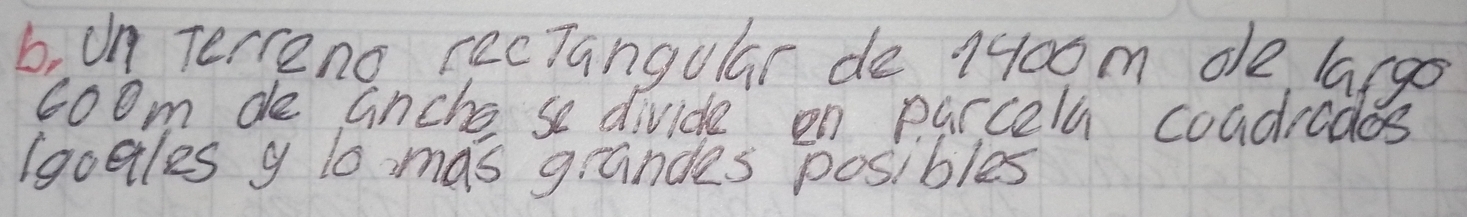 b. Un Terreno recTangular de 1400m de largo
600m de ancho se divide en parcela coadrados
igoales y lo mas grandes posibles